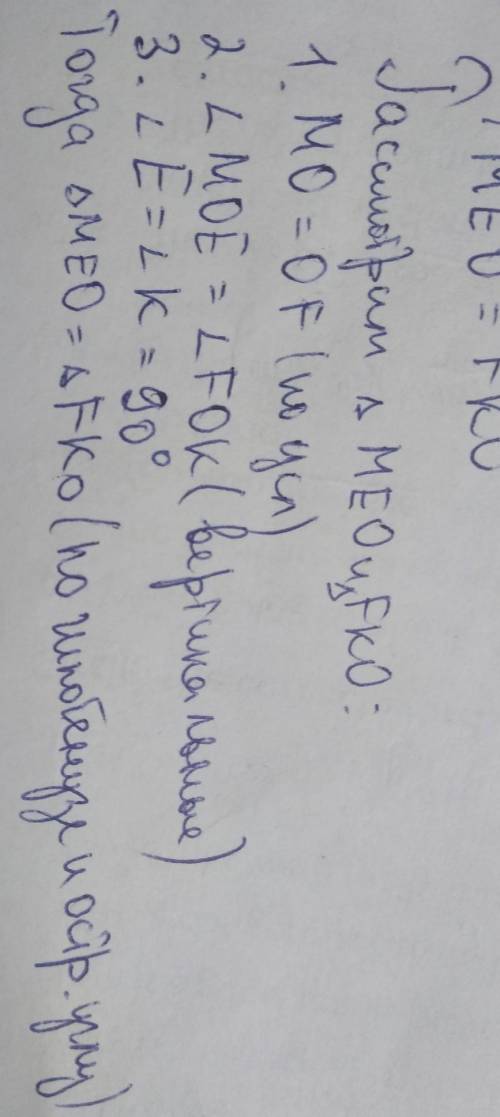 MEO = FKO
Рассмотрим △ MEO и △ FKO:
1. MO = OF (по усл)
2. ∠ MOE = ∠ FOK (вертикальные)
3. ∠ E = ∠ K = 90°
Тогда △ MEO = △ FKO (по гипотенузе и остр. углу)